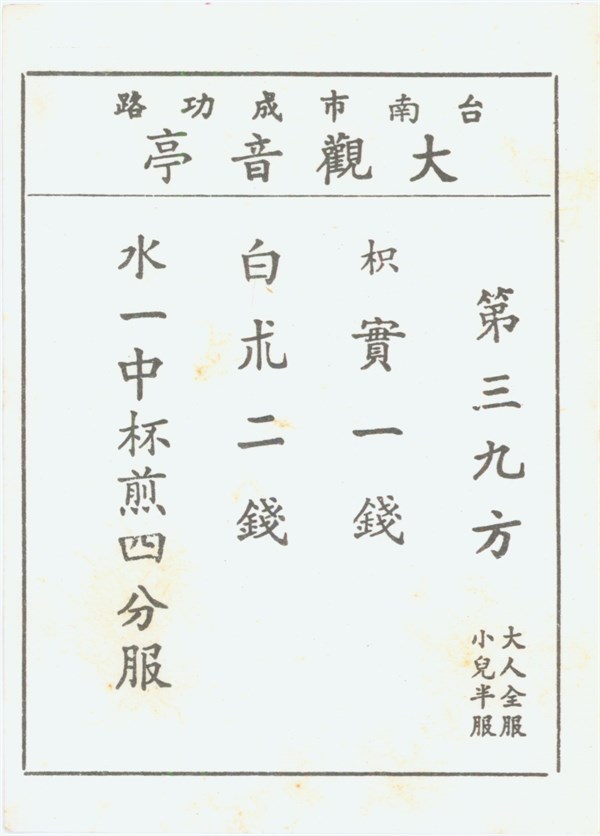 台南市成功路
大觀音亭
第三九方
大人全服
小兒半服
枳實一錢
白朮二錢
水一中杯煎四分服